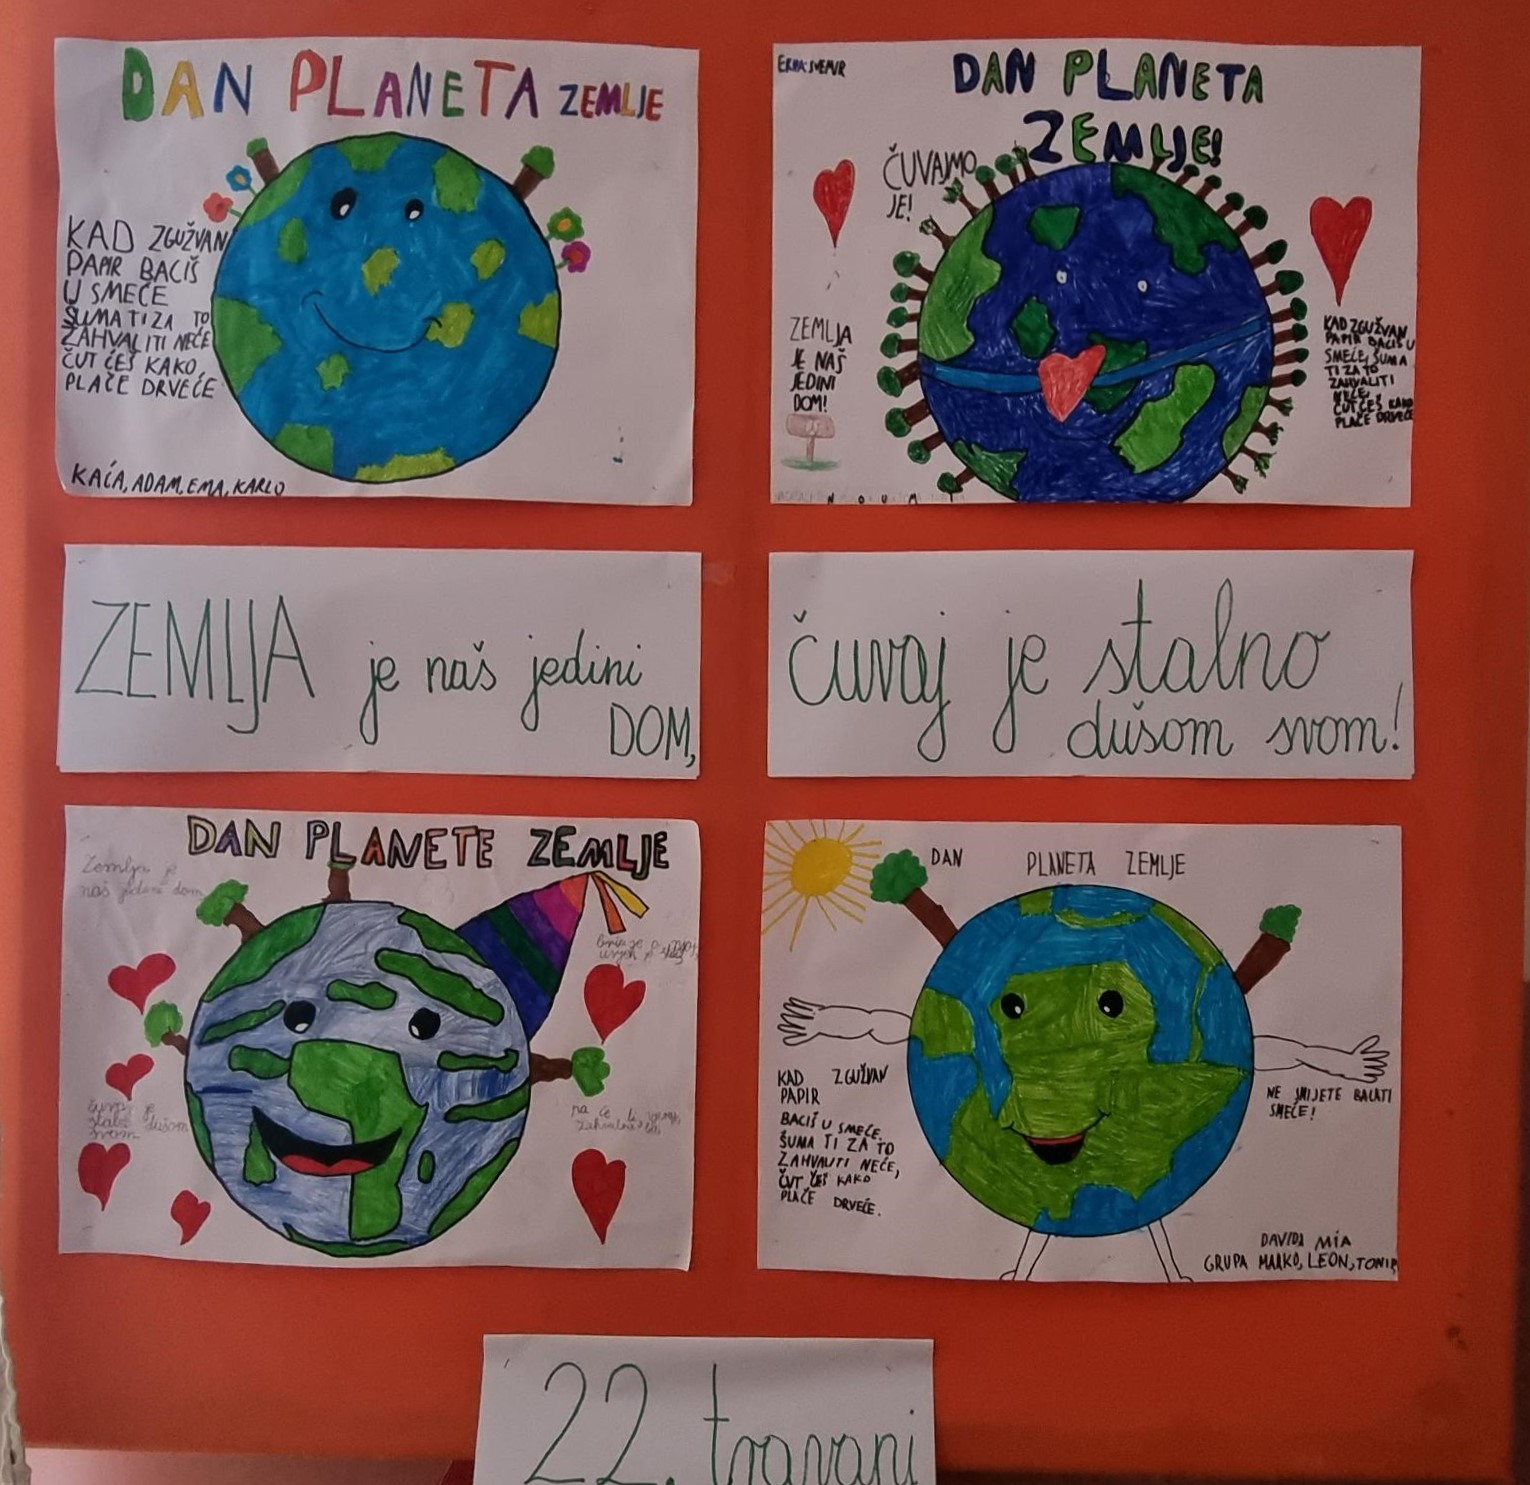 DAN PLANETA ZEMLJE
KAD ZGUŽVAN
PAPIR BACIŠ
U SMEĆE
ŠUMA TI ZA TO
ZAHVALITI NEĆE
ČUT ĆEŠ KAKO
PLAČE DRVEĆE
KAĆA, ADAM, EMA, KARLO
DAN PLANETA
ZEMLJE!
ČUVAJMO
JE!
ZEMLJA
JE NAŠ
JEDINI
DOM!
KAD ZGUŽVAN
PAPIR BACIŠ U
SMEĆE, ŠUMA
TI ZA TO
ZAHVALITI
NEĆE,
ČUT ĆEŠ KAKO
PLAČE DRVEĆE
ZEMLJA je naš jedini
DOM,
čuvaj je stalno
dušom svom!
DAN PLANETE ZEMLJE
Zemlja je
naš jedini dom
čuvaj je
stalno dušom
svom
DAN PLANETA ZEMLJE
KAD ZGUŽVAN
PAPIR
BACIŠ U SMEĆE.
ŠUMA TI ZA TO
ZAHVALITI NEĆE,
ČUT ĆEŠ KAKO
PLAČE DRVEĆE.
NE SMIJETE BACATI
SMEĆE!
DAVIDA MIA
GRUPA MARKO, LEON,
22. travanj